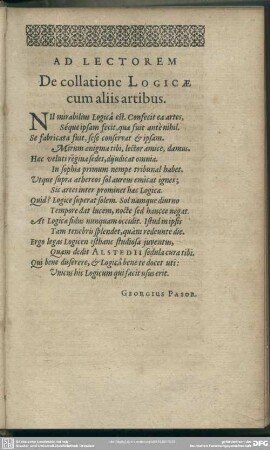 AD LECTOREM
De collatione LOGICÆ
cum aliis artibus.
NIl mirabilius Logicâ est. Confecit ea artes,
Séque ipsam fecit, quæ fuit antè nihil.
Se fabricata fuit, sese conservat & ipsam.
Mirum enigma tibi, lector amice, damus.
Hæc veluti regina sedet, dijudicat omnia.
In sophia primum nempe tribunal habet.
Utque supra æthereos sol aureus emicat ignes;
Sic artes inter prominet hæc Logica.
Quid? Logice superat solem. Sol namque diurno
Tempore dat lucem, nocte sed hancce negat.
At Logicæ sidus nunquam occidit. Istud in ipsis
Tam tenebris splendet, quàm redeunte die.
Ergo legas Logicen isthanc studiosa juventus,
Quam dedit ALSTEDII sedula cura tibi.
Qui bene disserere, & Logicâ bene te docet uti:
Unicus his Logicum qui facit usus erit.
GEORGIUS PASOR.